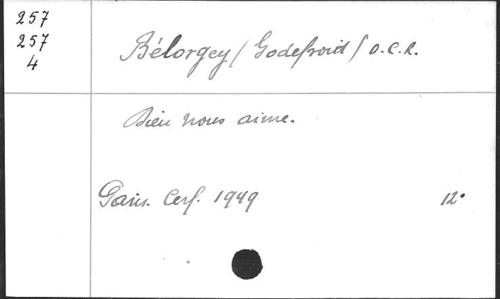 257
257
4
Bélorgey / Godefroid / O.C.R.
Dieu nous aime.
Paris. Cerf. 1949 12°